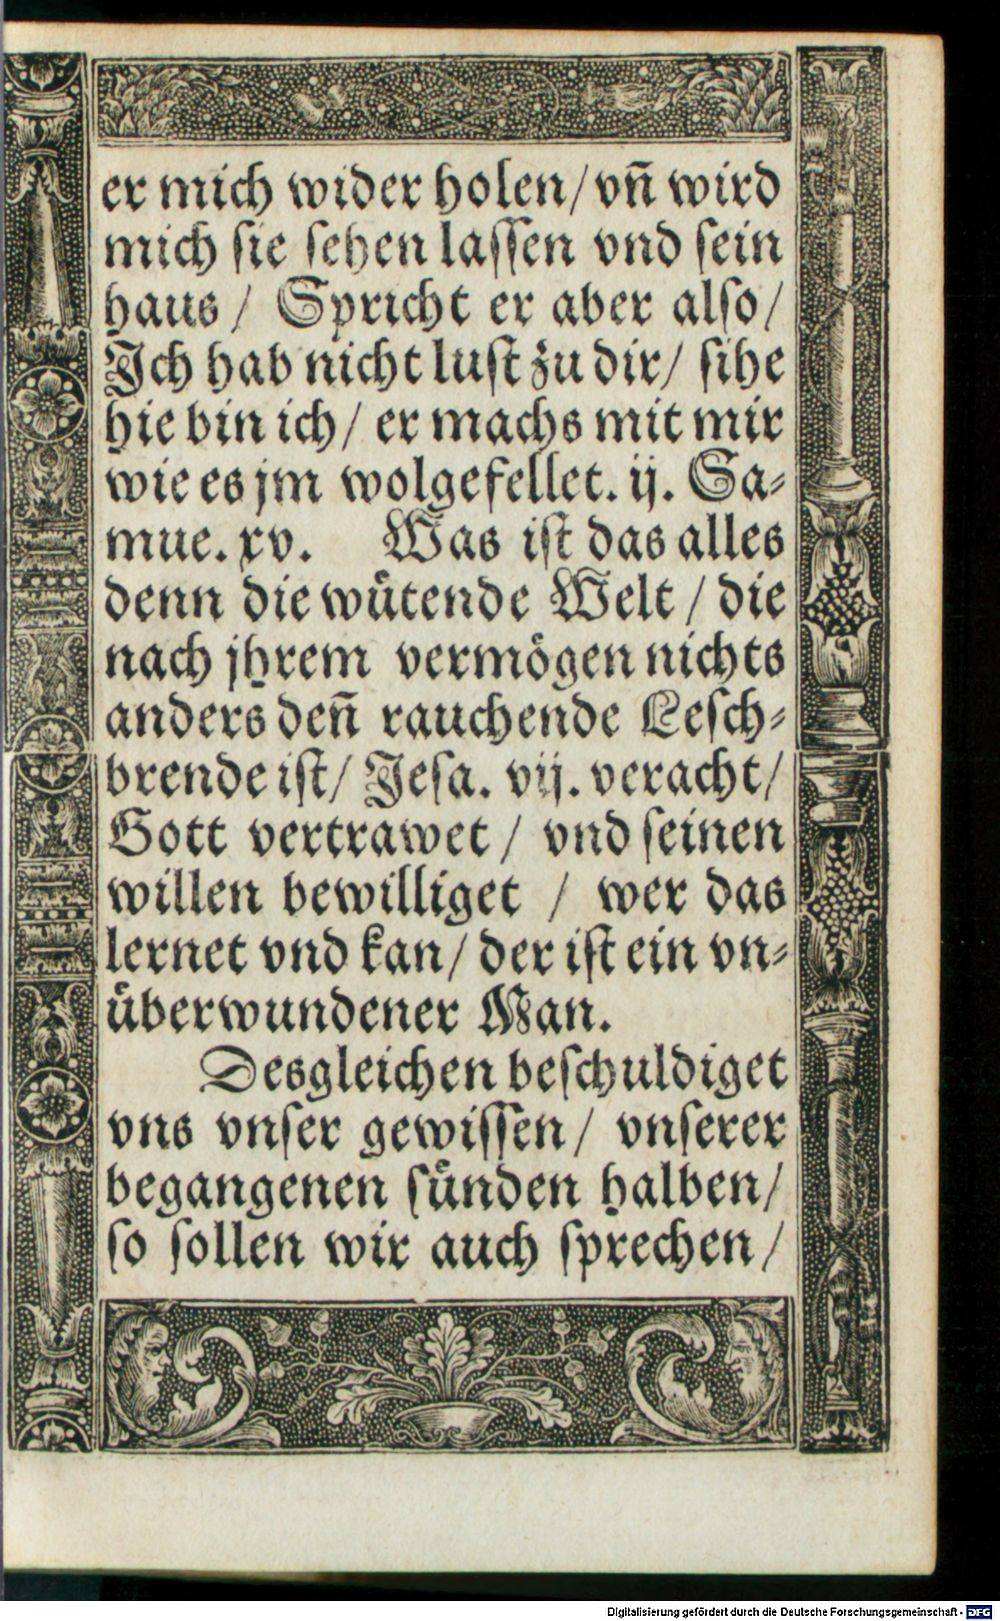 er mich wider holen/ vn̄ wird
mich sie sehen lassen vnd sein
haus/ Spricht er aber also/
Ich hab nicht lust zu dir/ sihe
hie bin ich/ er machs mit mir
wie es jm wolgefellet. ij. Sa-
mue. xv. Was ist das alles
denn die wuͤtende Welt/ die
nach jhrem vermoͤgen nichts
anders den̄ rauchende Lesch-
brende ist/ Jesa. vij. veracht/
Gott vertrawet/ vnd seinen
willen bewilliget/ wer das
lernet vnd kan/ der ist ein vn-
uͤberwundener Man.
Desgleichen beschuldiget
vns vnser gewissen/ vnserer
begangenen suͤnden halben/
so sollen wir auch sprechen/
Digitalisierung gefördert durch die Deutsche Forschungsgemeinschaft - DFG